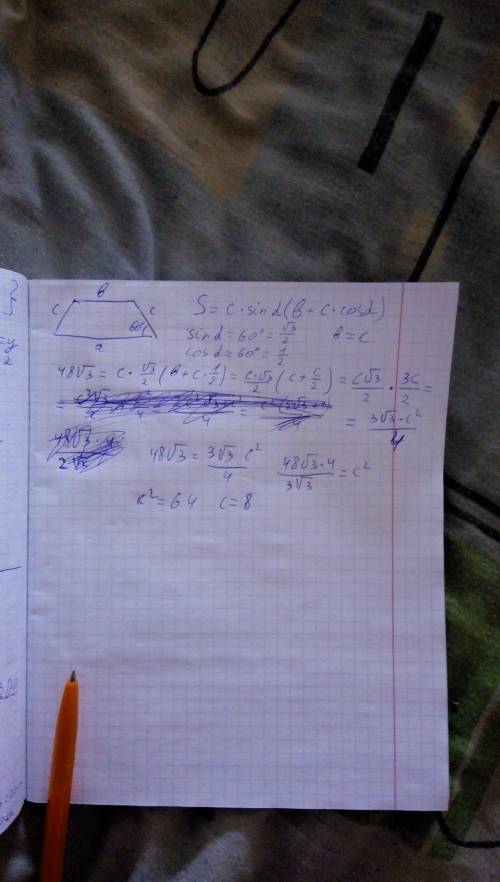 b
c c
60°
a
S = c · sin d (b + c · cos d)
sin d = 60° = √3/2 b = c
cos d = 60° = 1/2
48√3 = c · √3/2 (b + c · 1/2) = c·√3/2 (c + c/2) = c√3/2 · 3c/2 =
= 3√3 · c²/4
48√3 = 3√3 c²/4 48√3 · 4/3√3 = c²
c² = 64 c = 8